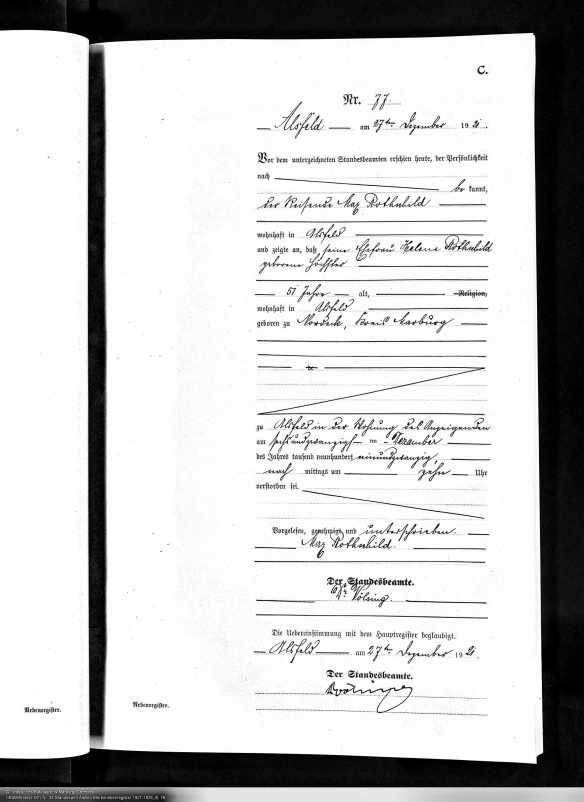 C.
Nr. 77.
Alsfeld am 27ten Dezember 1921.
Vor dem unterzeichneten Standesbeamten erschien heute, der Persönlichkeit
nach bekannt,
der Reisende Max Rothschild
wohnhaft in Alsfeld
und zeigte an, daß seine Ehefrau Helene Rothschild
geborene Höchster
51 Jahre alt, Religion,
wohnhaft in Alsfeld
geboren zu Nordeck, Kreis Marburg
zu Alsfeld in der Wohnung des Anzeigenden
am sechsundzwanzigst en Dezember
des Jahres tausend neunhundert einundzwanzig,
nach mittags um zehn Uhr
verstorben sei.
Vorgelesen, genehmigt und unterschrieben.
Max Rothschild.
Der Standesbeamte.
Völsing.
Die Uebereinstimmung mit dem Hauptregister beglaubigt.
Alsfeld am 27ten Dezember 1921.
Der Standesbeamte.
Völsing
Nebenregister.
Nebenregister.